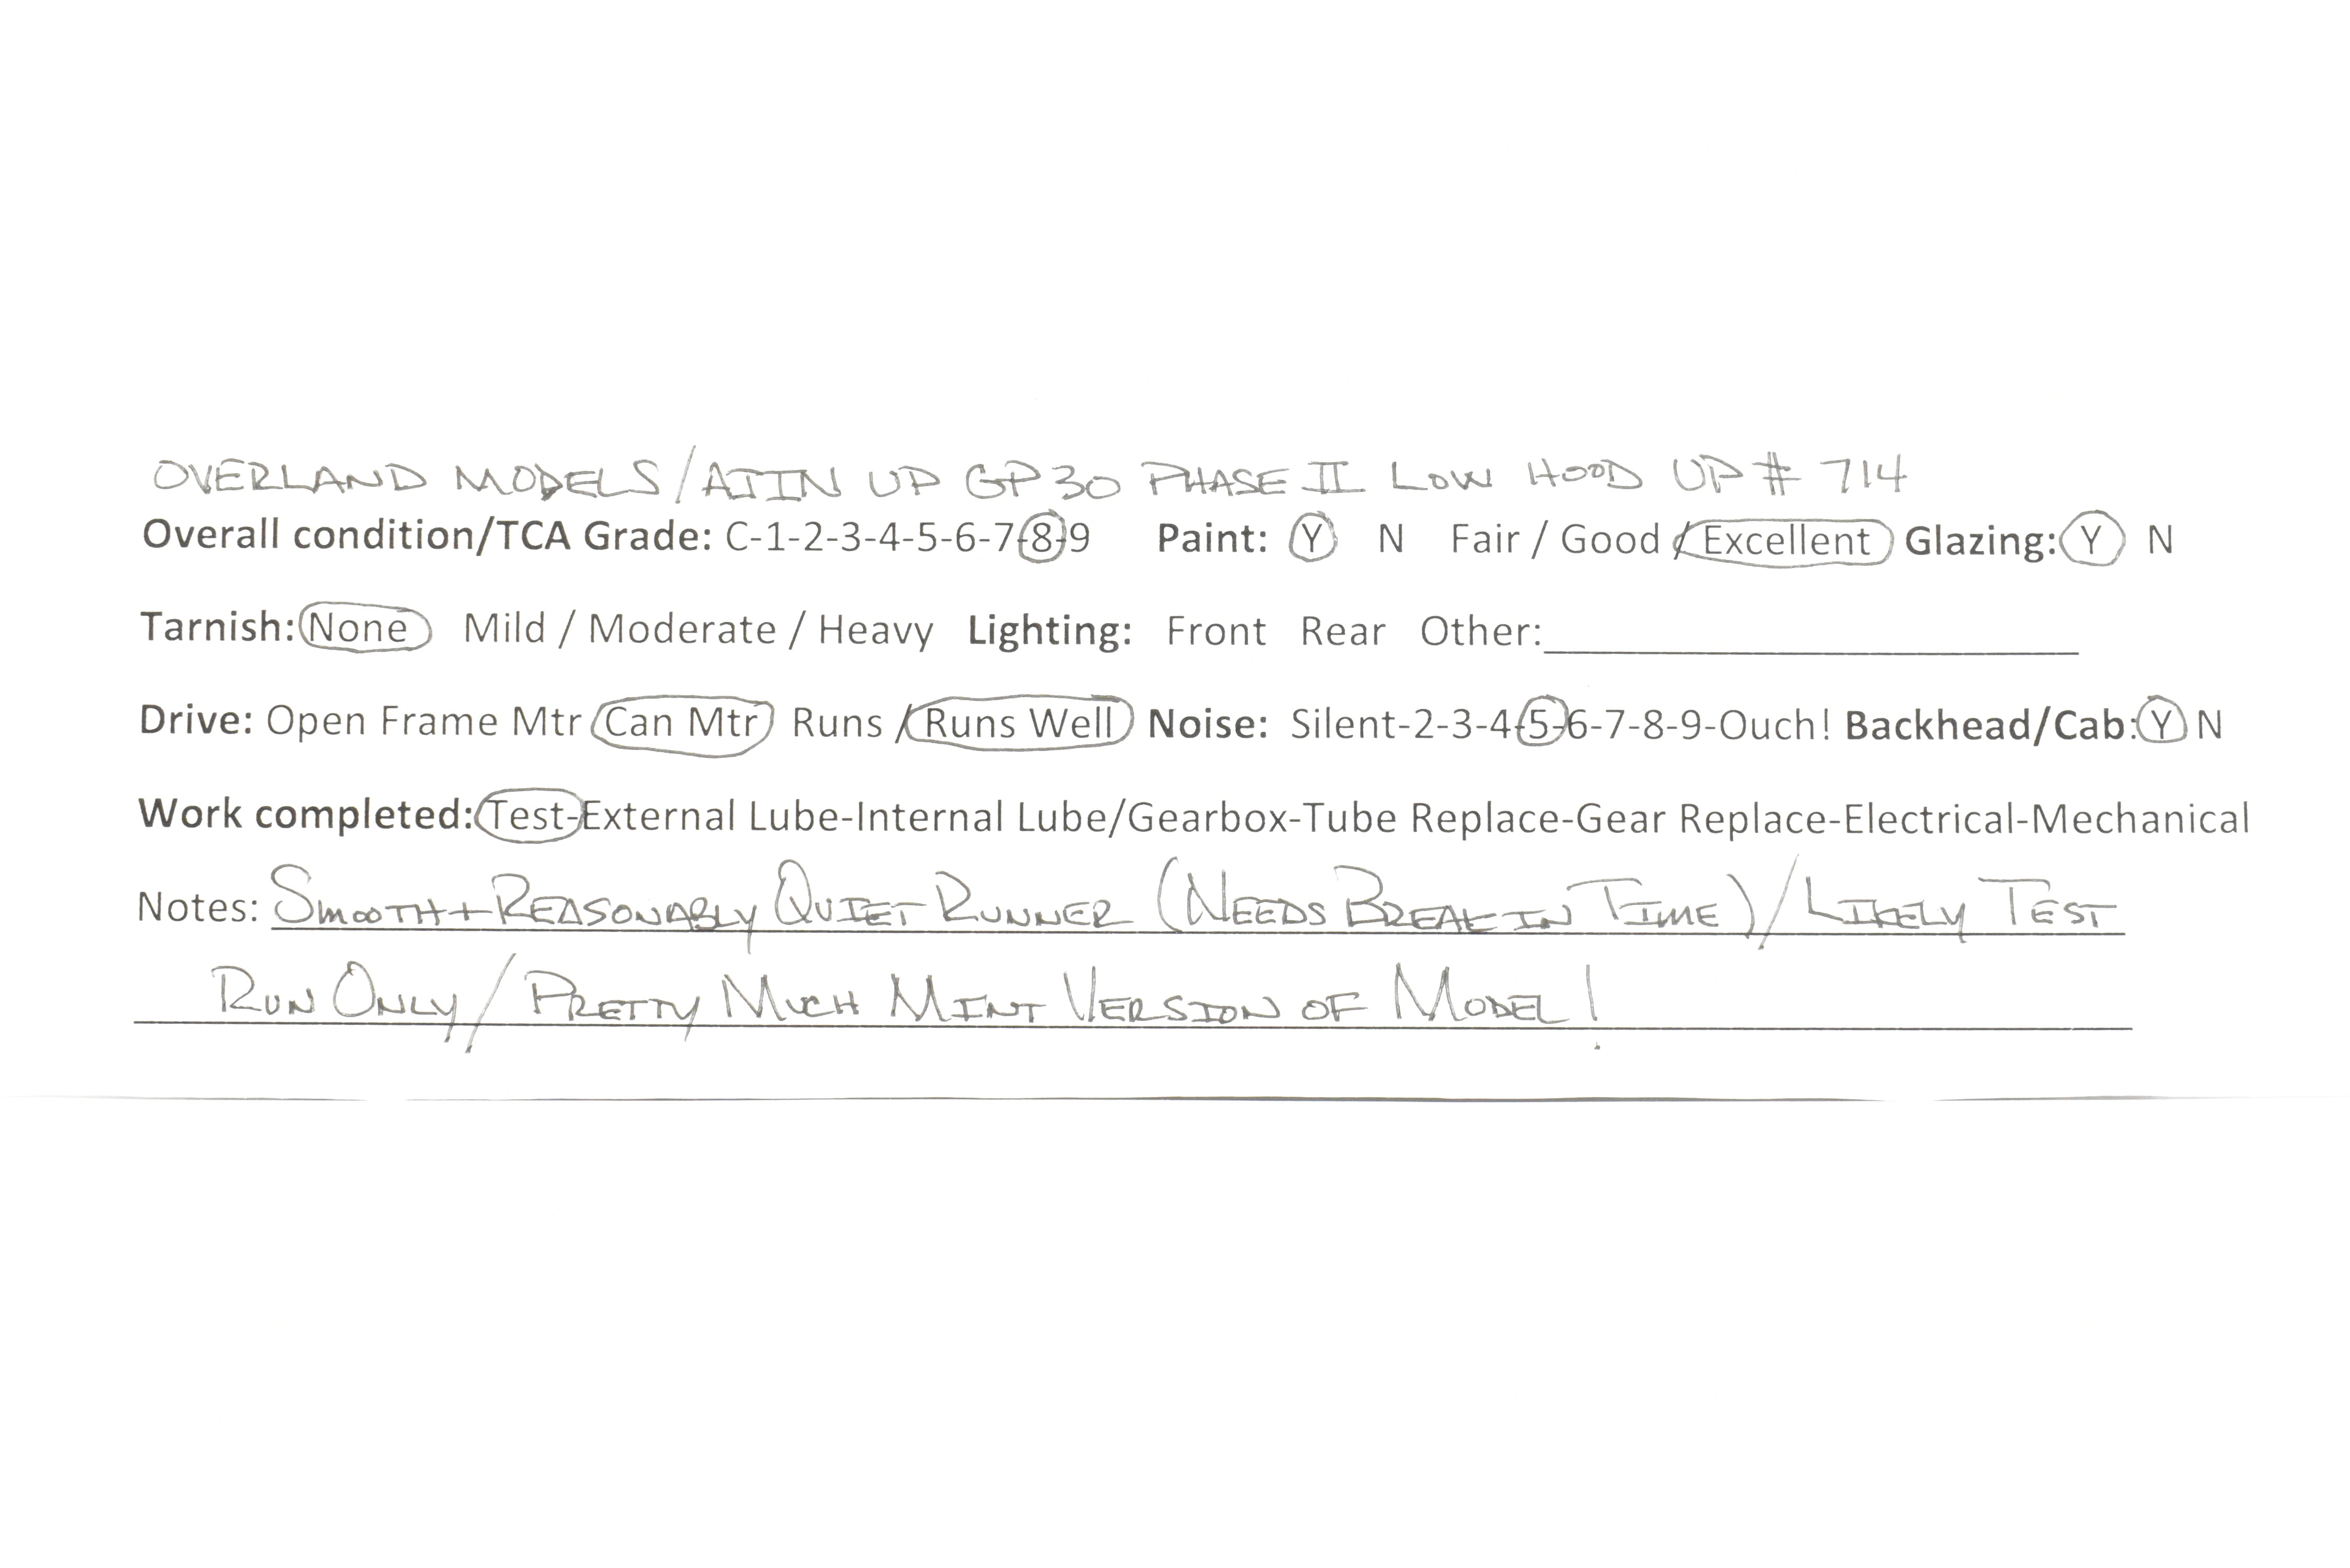 OVERLAND MODELS/AJIN UP GP30 PHASE II LOW HOOD UP # 714
Overall condition/TCA Grade: C-1-2-3-4-5-6-7-8-9 Paint: Y N Fair / Good / Excellent Glazing: Y N
Tarnish: None Mild / Moderate / Heavy Lighting: Front Rear Other:
Drive: Open Frame Mtr Can Mtr Runs / Runs Well Noise: Silent-2-3-4-5-6-7-8-9-Ouch! Backhead/Cab: Y N
Work completed: Test-External Lube-Internal Lube/Gearbox-Tube Replace-Gear Replace-Electrical-Mechanical
Notes: SMOOTH + REASONABLY QUIET RUNNER (NEEDS BREAK IN TIME) / LIKELY TEST
RUN ONLY / PRETTY MUCH MINT VERSION OF MODEL!